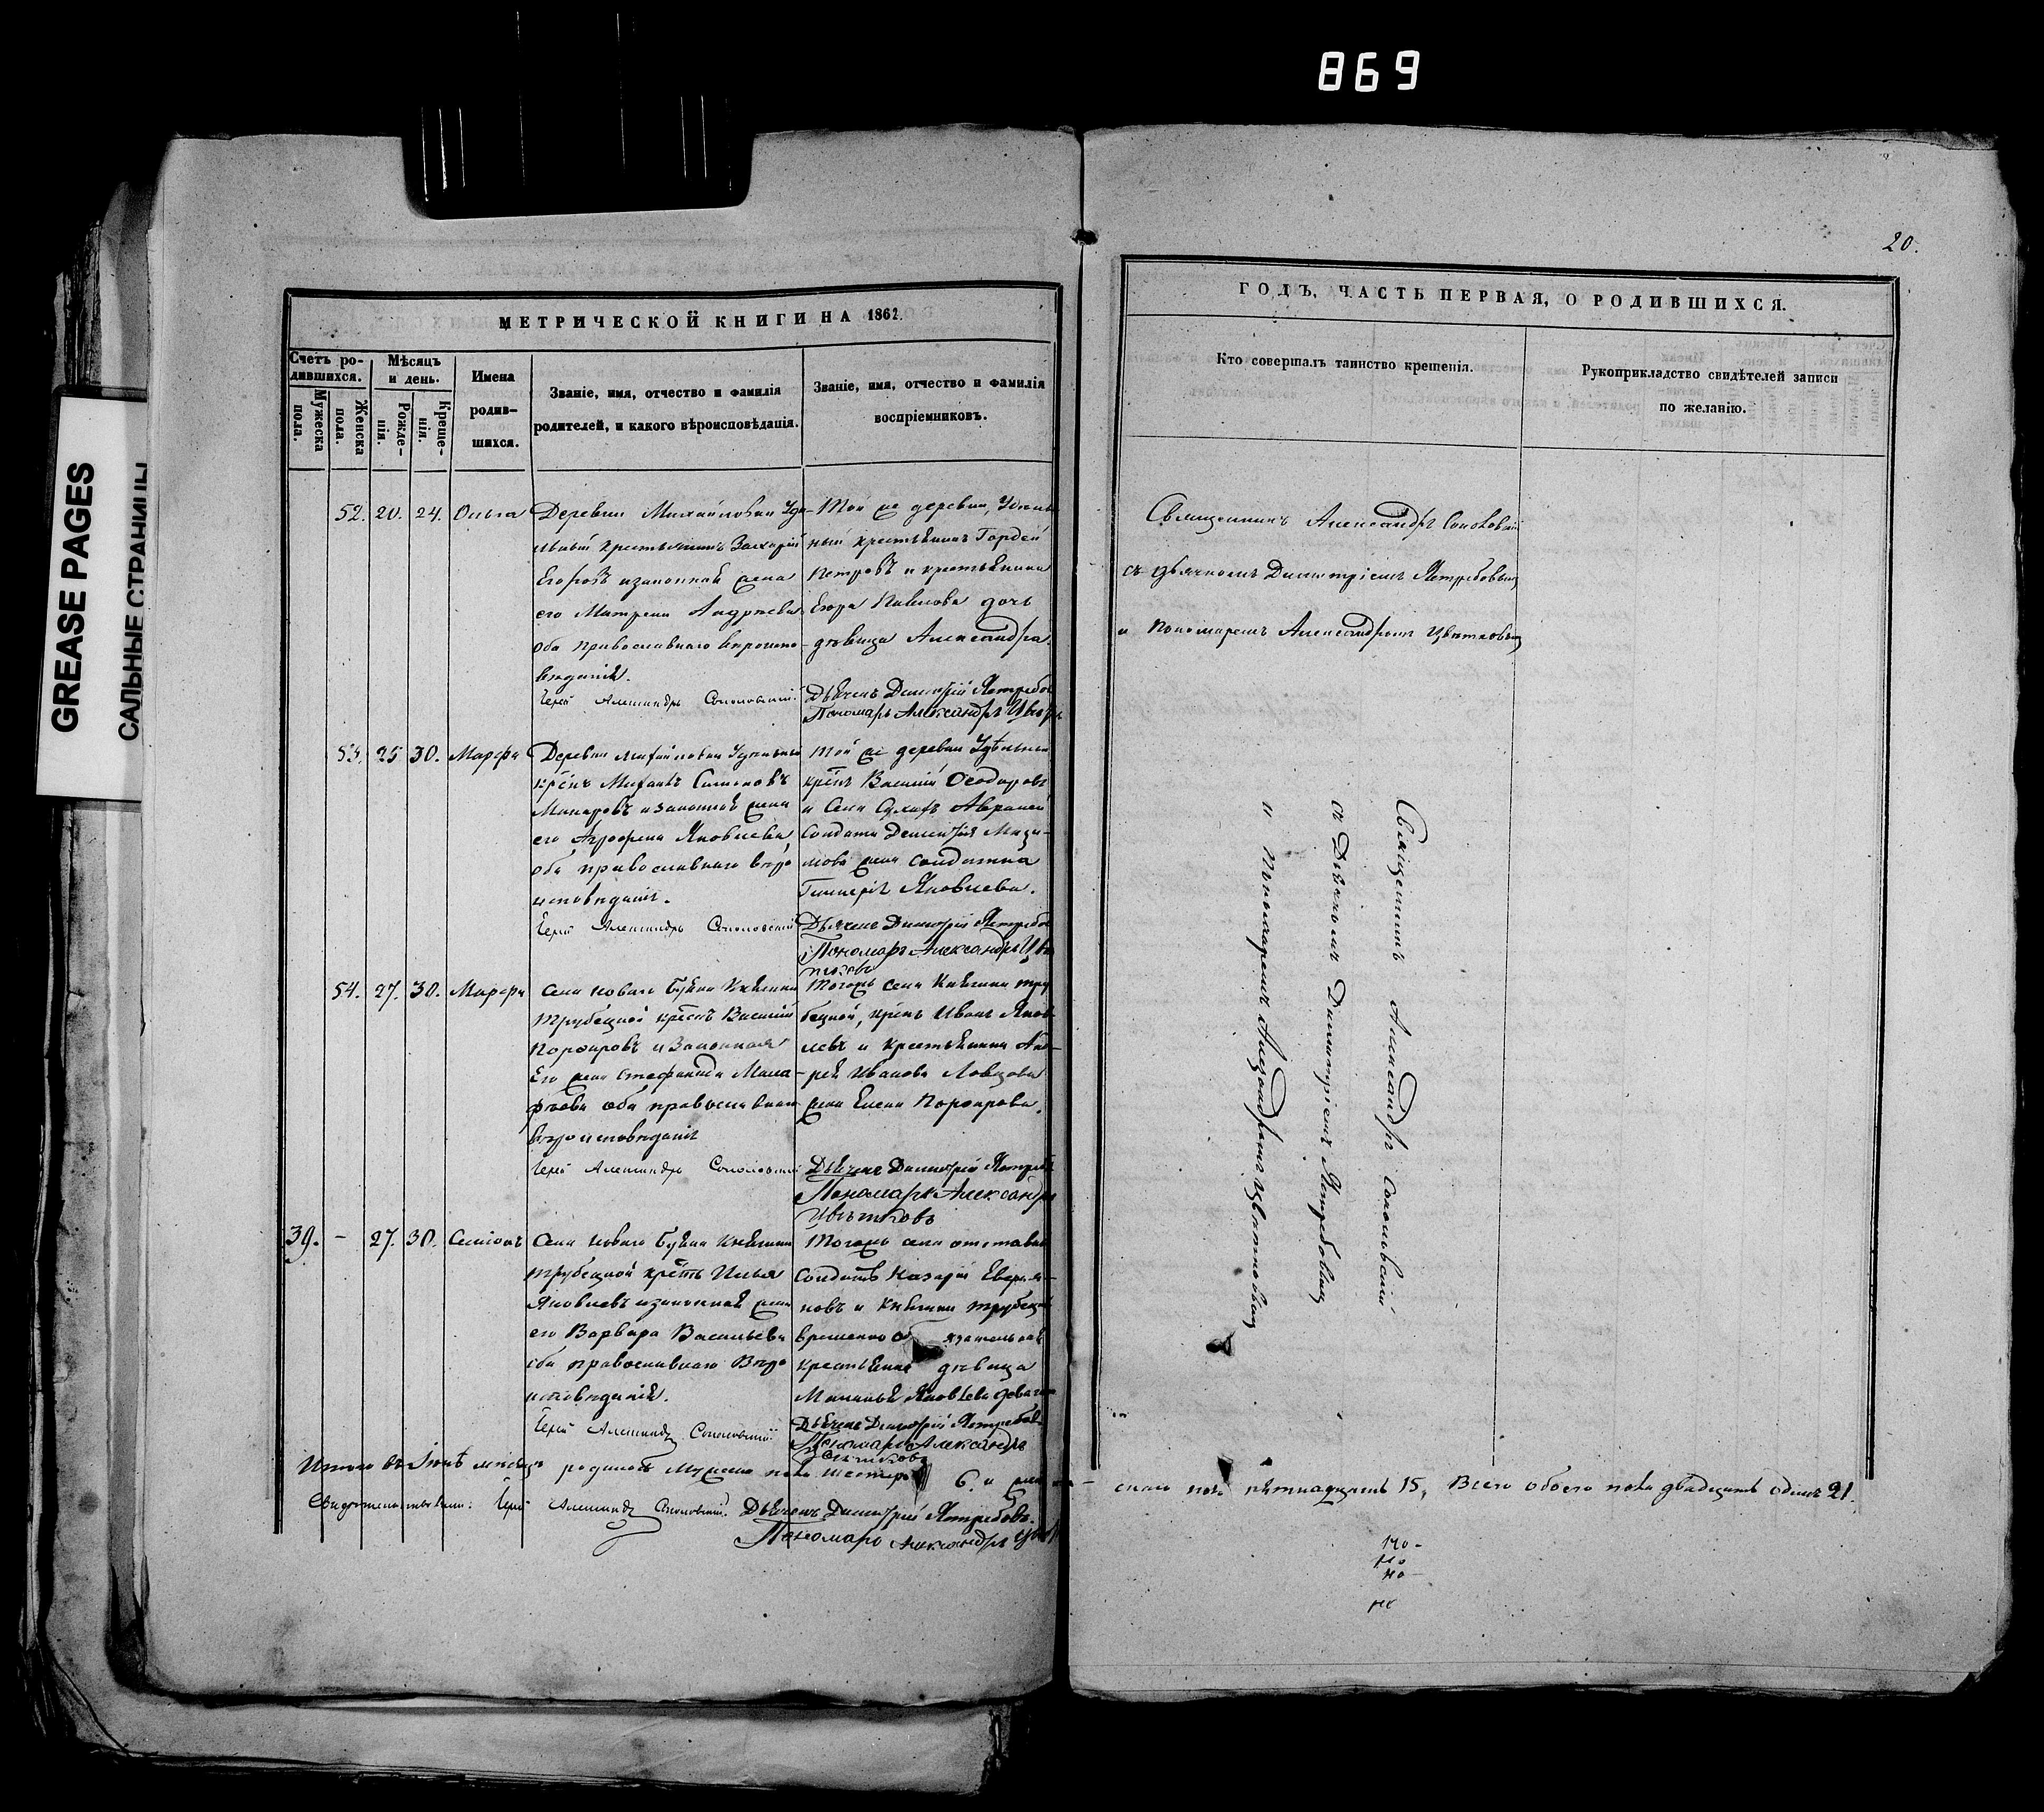 869
GREASE PAGES
САЛЬНЫЕ СТРАНИЦЫ
20.
МЕТРИЧЕСКОЙ КНИГИ НА 1862.
Счетъ ро-
дившихся.
Мужеска
пола.
Женска
пола.
Мѣсяцъ
и день.
Рожде-
нія.
Креще-
нія.
Имена
родив-
шихся.
Званіе, имя, отчество и фамилія
родителей, и какого вѣроисповѣданія.
Званіе, имя, отчество и фамилія
воспріемниковъ.
52. 20. 24. Ольга
Деревни Михайловки Удѣ-
льный крестьянинъ Захарій
Егоровъ и законная жена
его Матрена Андреева
оба православнаго вѣроиспо-
вѣданія.
Іерей Александръ Соколовскій.
Той же деревни, Удѣль-
ный крестьянинъ Гордей
Петровъ и крестьянина
Егора Павлова дочь
дѣвица Александра.
Дьячекъ Димитрій Ястребов
Пономарь Александръ Цвѣтк
53. 25 30. Марфа
Деревни Михайловки Удѣльный
крѣнъ Михаилъ Симоновъ
Макаровъ и законная жена
его Агрофена Яковлева,
оба православнаго вѣро
исповѣданія.
Іерей Александръ Соколовскій
Той же деревни Удѣльный
крѣнъ Василій Ѳеодоровъ
и Села
Солдата Дементія Макси-
мова жена солдатка
Гликерія Яковлева.
Дьячекъ Димитрій Ястребов
Пономарь Александръ Цвѣ
тковъ
54. 27. 30. Марфа
Села Новаго Буяна Княгини
Трубецкой крестъ Василій
Порфировъ и Законная
Его жена Стефанида Мала-
фѣева оба православнаго
вѣроисповѣданія
Іерей Александръ Соколовскій
Тогожъ села Княгини Тру
бецкой, крѣнъ Иванъ Яков-
левъ и крестьянина Анд-
рея Иванова Ловцова
жена Елена Порфирова.
Дьячекъ Димитрій Ястребов
Пономарь Александръ
Цвѣтковъ
39. - 27. 30. Симеонъ
Села Новаго Буяна Княгини
Трубецкой крестъ Илья
Яковлевъ и законная жена
его Варвара Васильева
оба православнаго Вѣро
исповѣданія.
Іерей Александръ Соколовскій.
Тогожъ села отставной
Солдатъ Назарій
новъ и Княгини Трубецкой
временно об язанная
крестьянка дѣвица
Яковлева
Дьячекъ Димитрій Ястребов.
Пономарь Александръ
Цвѣтковъ
Итого въ Іюнѣ мѣсяцѣ родилось Мужеска пола шестеро 6. и жен-
Свидѣтельствовали: Іерей Александръ Соколовскій. Дьячекъ Димитрій Ястребовъ.
Пономарь Александръ Цвѣт
ГОДЪ, ЧАСТЬ ПЕРВАЯ, О РОДИВШИХСЯ.
Кто совершалъ таинство крещенія.
Рукоприкладство свидѣтелей записи
по желанію.
Священникъ Александръ Соколовскій
съ Дьячкомъ Димитріемъ Ястребовымъ
и Пономаремъ Александромъ Цвѣтковымъ
Священникъ Александръ Соколовскій
съ Дьячкомъ Димитріемъ Ястребовымъ
и Пономаремъ Александромъ Цвѣтковымъ
скаго пола пятнадцать 15, Всего обоего пола двадцать одинъ 21.